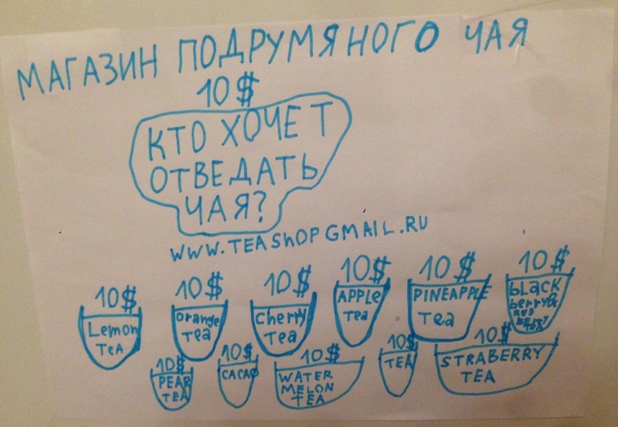 МАГАЗИН ПОДРУМЯНОГО ЧАЯ
10$
КТО ХОЧЕТ
ОТВЕДАТЬ
ЧАЯ?
WWW.TEAShOPGMAIL.RU
10$ 10$ 10$ 10$ 10$ 10$
Lemon
TeA
orange
Tea
Cherry
Tea
APPLe
Tea
PINEAPPLE
Tea
bLACK
berry&
RED
10$ 10$ 10$ 10$ 10$
PEAR
TEA
CACAO
WATER
MELON
TEA
TEA
STRABERRY
TEA